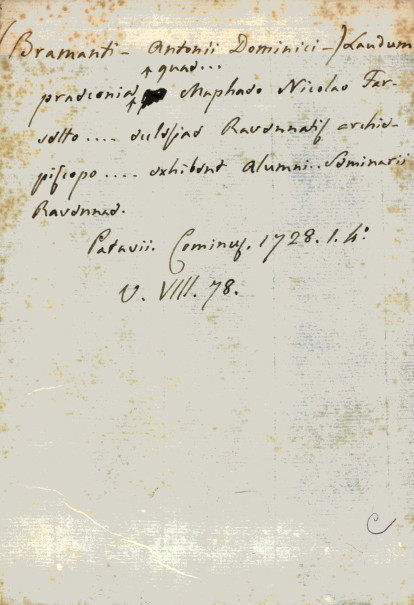 (Bramanti - Antonii Dominici -) Laudum
quae...
praeconia Maphaeo Nicolao Far-
setto .... ecclesiae Ravennatis archie-
piscopo .... exhibent Alumni .. Seminarii
Ravennae.
Patavii. Cominus. 1728. 1. 4:
V. VIII. 78.